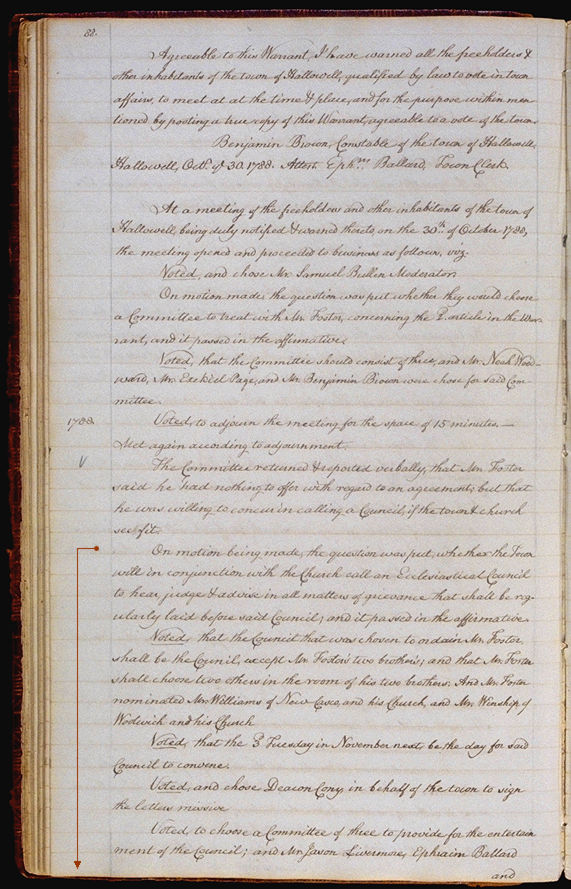 88.
Agreeable to this Warrant, I have warned all the freeholders &
other inhabitants of the town of Hallowell, qualified by law to vote in town
affairs, to meet at at the time & place, and for the purpose within men-
tioned by posting a true copy of this Warrant, agreeable to a vote of the town.
Benjamin Brown, Constable of the town of Hallowell
Hallowell, Octr. ye 30. 1788. Attest. Ephm. Ballard, Town Clerk.
At a meeting of the freeholders and other inhabitants of the town of
Hallowell, being duly notified & warned thereto, on the 30th. of October 1788,
the meeting opened and proceeded to business as follows, viz.
Voted, and chose Mr. Samuel Bullen Moderator.
On motion made, the question was put whether they would choose
a Committee to treat with Mr. Foster, concerning the 2. article in the War-
rant, and it passed in the affirmative.
Voted, that the Committee should consist of three, and Mr. Noah Wood-
ward, Mr. Ezekiel Page, and Mr. Benjamin Brown were chose for said Com-
mittee.
1788.
Voted, to adjourn the meeting for the space of 15 minutes.—
Met again according to adjournment.
The Committee returned & reported verbally, that Mr. Foster
said he had nothing to offer with regard to an agreement; but that
he was willing to concur in calling a Council, if the town & church
see fit.
On motion being made, the question was put, whether the Town
will in conjunction with the Church call an Ecclesiastical Council
to hear judge & advise in all matters of grievance that shall be reg-
ularly laid before said Council; and it passed in the affirmative.
Voted, that the Council that was chosen to ordain Mr. Foster,
shall be the Council, except Mr. Foster's two brothers; and that Mr. Foster
shall choose two others in the room of his two brothers. And Mr. Foster
nominated Mr. Williams of New Casco, and his Church, and Mr. Winship of
Wodwich and his Church
Voted, that the 3 Tuesday in November next, be the day for said
Council to convene.
Voted, and chose Deacon Cony, in behalf of the town to sign
the letters missive
Voted to choose a Committee of three to provide for the entertain
ment of the Council; and Mr. Jason Livermore, Ephraim Ballard
and